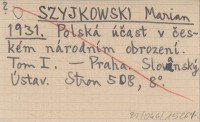 ?
SZYJKOWSKI Marian
1931. Polská účast v čes-
kém národním obrození.
Tom I. — Praha. Slovanský
Ústav. Stron 508, 8°.